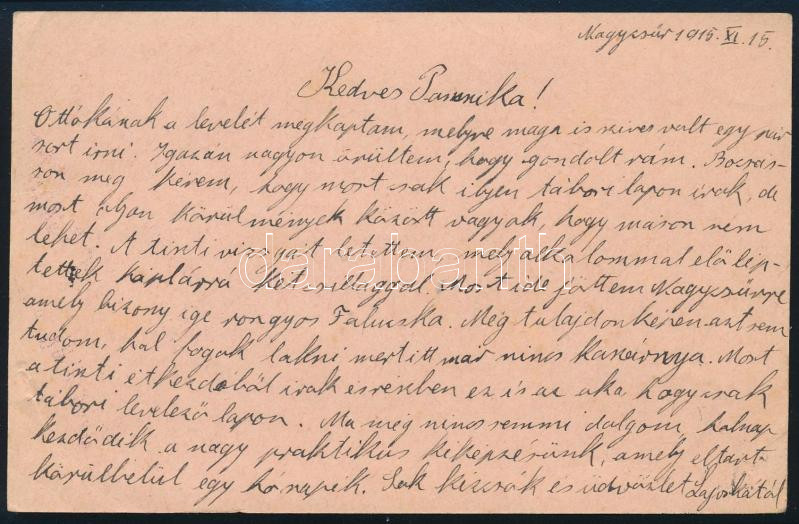 Nagycsür 1915. XI. 15.
Kedves Pannika!
Ottókának a levelét megkaptam, melyre maga is szives volt egy pár
sort irni. Igazán nagyon örültem, hogy gondolt rám. Bocsás-
son meg kérem, hogy most csak ilyen tábori lapon irok, de
most olyan körülmények között vagyok, hogy máson nem
lehet. A tiszti vizsgát letettem, mely alkalommal elő lép-
tettek káplárrá két csillaggal. Most ide jöttem Nagycsürre
amely bizony ige rongyos Falucska. Még tulajdonképen azt sem
tudom, hol fogok lakni mert itt már nincs kaszárnya. Most
a tiszti étkezdéből irok és részben ez is az oka, hogy csak
tábori levelező lapon. Ma még nincs semmi dolgom, holnap
kezdődik a nagy praktikus kiképzésünk, amely eltart
körülbelül egy hónapik. Sok kézcsók és üdvözlet Lajoskától
darabanth